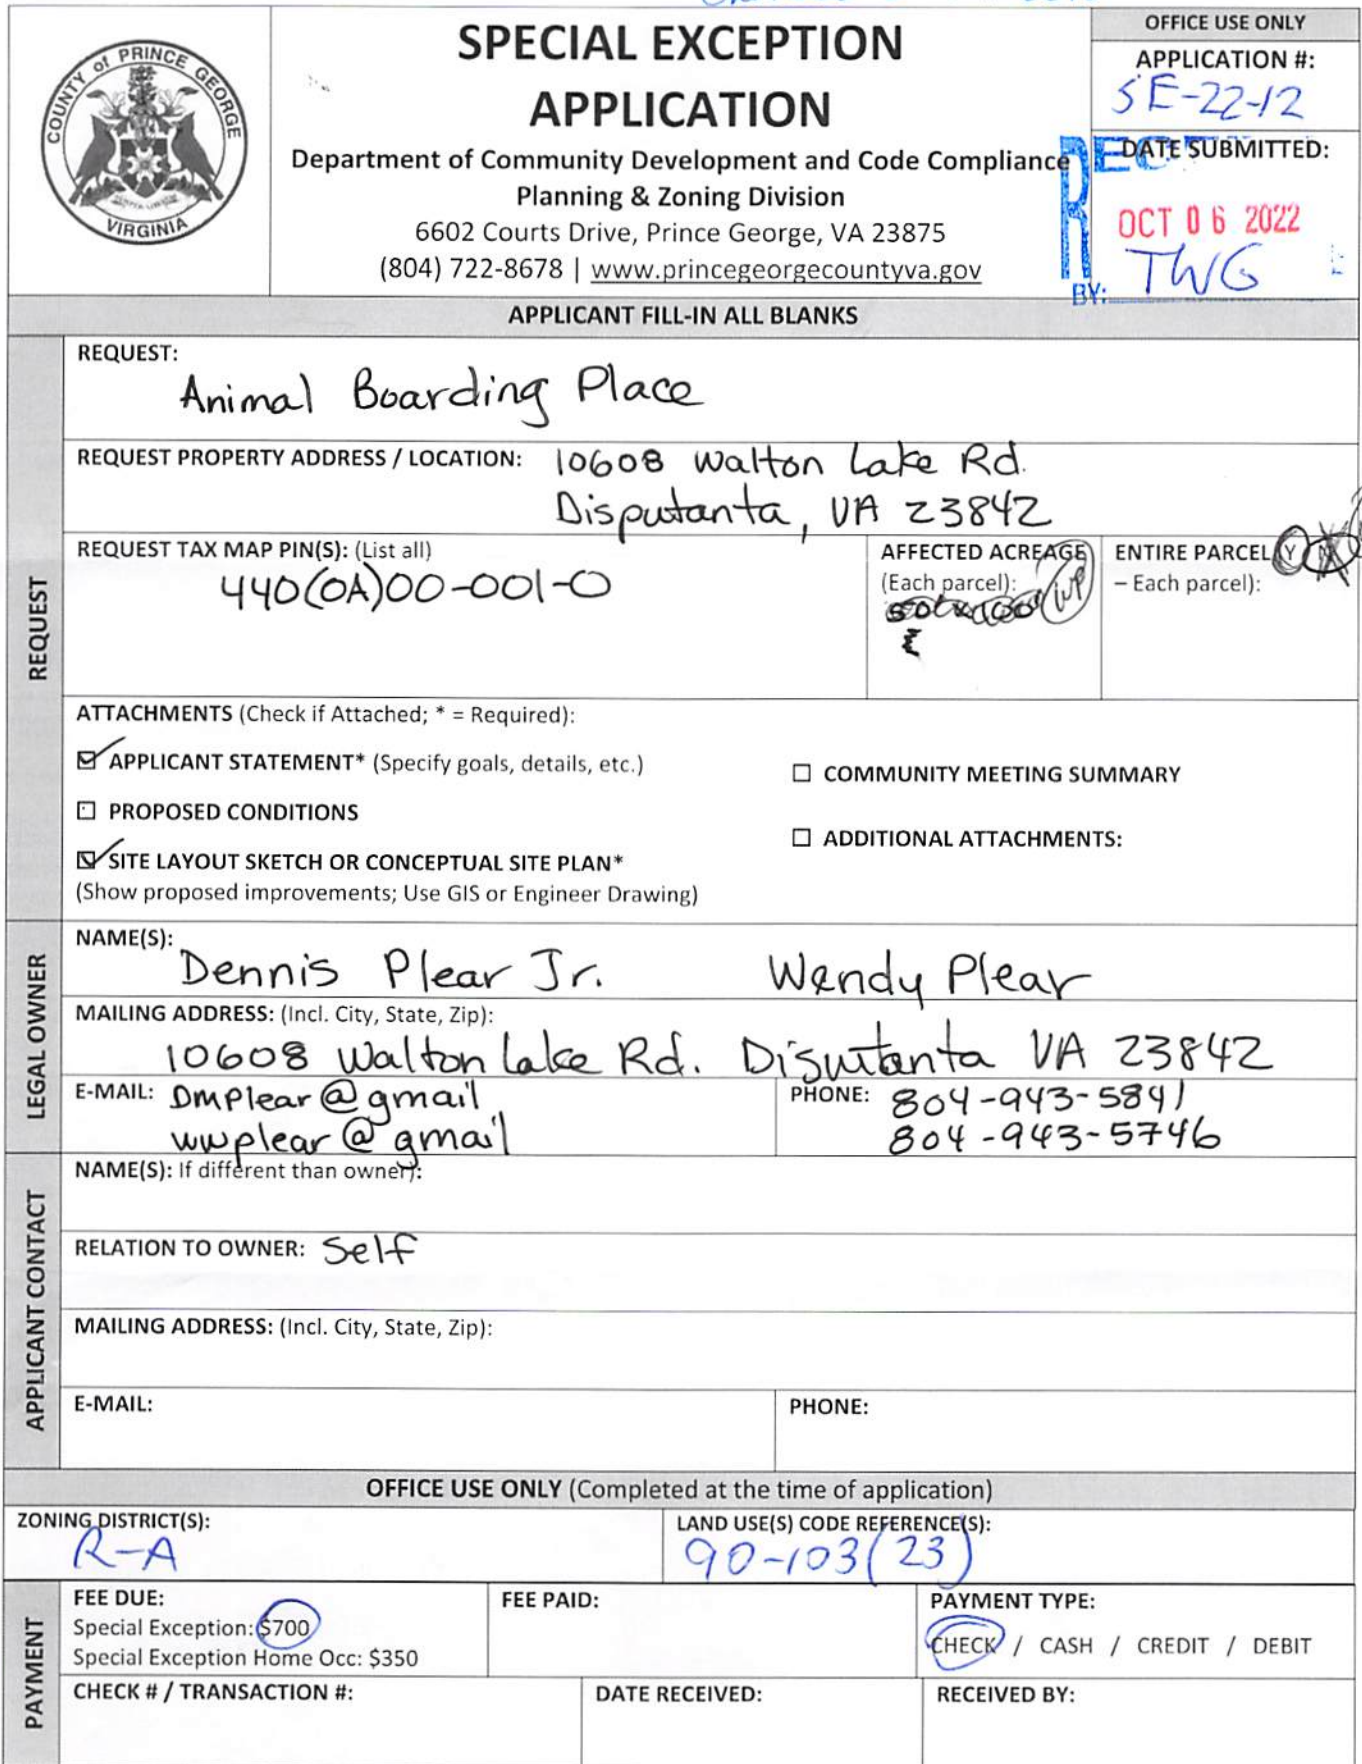 COUNTY of PRINCE GEORGE
VIRGINIA
SPECIAL EXCEPTION
APPLICATION
Department of Community Development and Code Compliance
Planning & Zoning Division
6602 Courts Drive, Prince George, VA 23875
(804) 722-8678 | www.princegeorgecountyva.gov
OFFICE USE ONLY
APPLICATION #:
SE-22-12
DATE SUBMITTED:
OCT 06 2022
BY: TWG
APPLICANT FILL-IN ALL BLANKS
REQUEST
REQUEST:
Animal Boarding Place
REQUEST PROPERTY ADDRESS / LOCATION: 10608 Walton Lake Rd.
Disputanta, VA 23842
REQUEST TAX MAP PIN(S): (List all)
440(0A)00-001-0
AFFECTED ACREAGE
(Each parcel):
WP
ENTIRE PARCEL (Y
– Each parcel):
ATTACHMENTS (Check if Attached; * = Required):
☑ APPLICANT STATEMENT* (Specify goals, details, etc.)
☐ PROPOSED CONDITIONS
☑ SITE LAYOUT SKETCH OR CONCEPTUAL SITE PLAN*
(Show proposed improvements; Use GIS or Engineer Drawing)
☐ COMMUNITY MEETING SUMMARY
☐ ADDITIONAL ATTACHMENTS:
LEGAL OWNER
NAME(S):
Dennis Plear Jr. Wendy Plear
MAILING ADDRESS: (Incl. City, State, Zip):
10608 Walton Lake Rd. Disutanta VA 23842
E-MAIL: Dmplear@gmail
wwplear@gmail
PHONE: 804-943-5841
804-943-5746
APPLICANT CONTACT
NAME(S): If different than owner):
RELATION TO OWNER: Self
MAILING ADDRESS: (Incl. City, State, Zip):
E-MAIL:
PHONE:
OFFICE USE ONLY (Completed at the time of application)
ZONING DISTRICT(S):
R-A
LAND USE(S) CODE REFERENCE(S):
90-103(23)
PAYMENT
FEE DUE:
Special Exception: $700
Special Exception Home Occ: $350
FEE PAID:
PAYMENT TYPE:
CHECK / CASH / CREDIT / DEBIT
CHECK # / TRANSACTION #:
DATE RECEIVED:
RECEIVED BY: